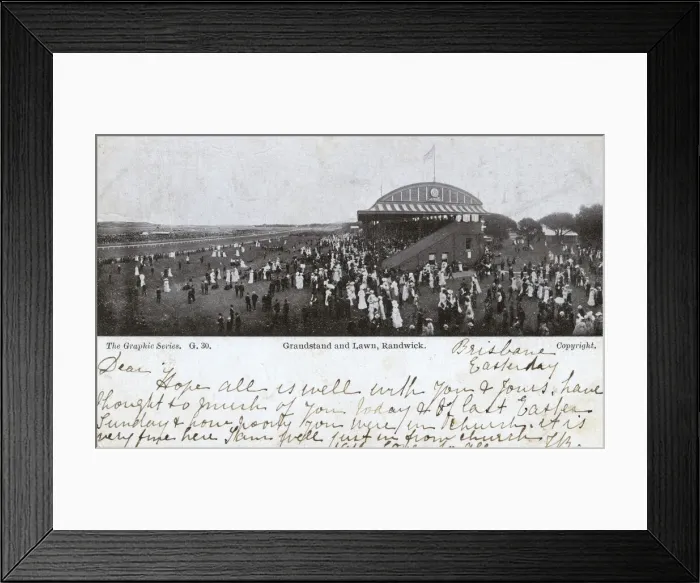 The Graphic Series. G. 30.
Grandstand and Lawn, Randwick.
Copyright.
Brisbane
Easterday
Dear
Hope all is well with you & yours, have
thought so much of you today & of last Easter
Sunday & how you were in church, it is
very fine here I am well just in from church